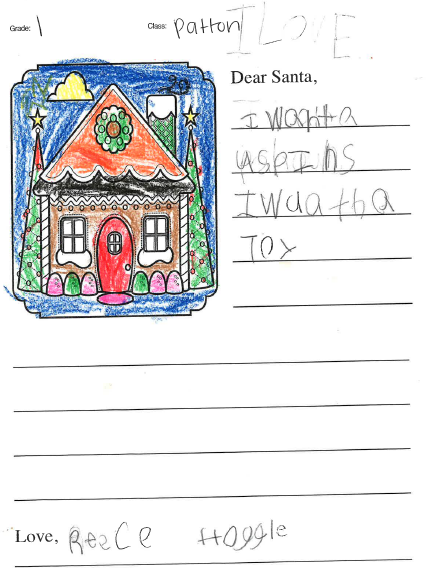 Grade: 1 Class: Patton I LOVE
Dear Santa,
I wanta
I wuatha
Toy
Love, Reece Hoggle